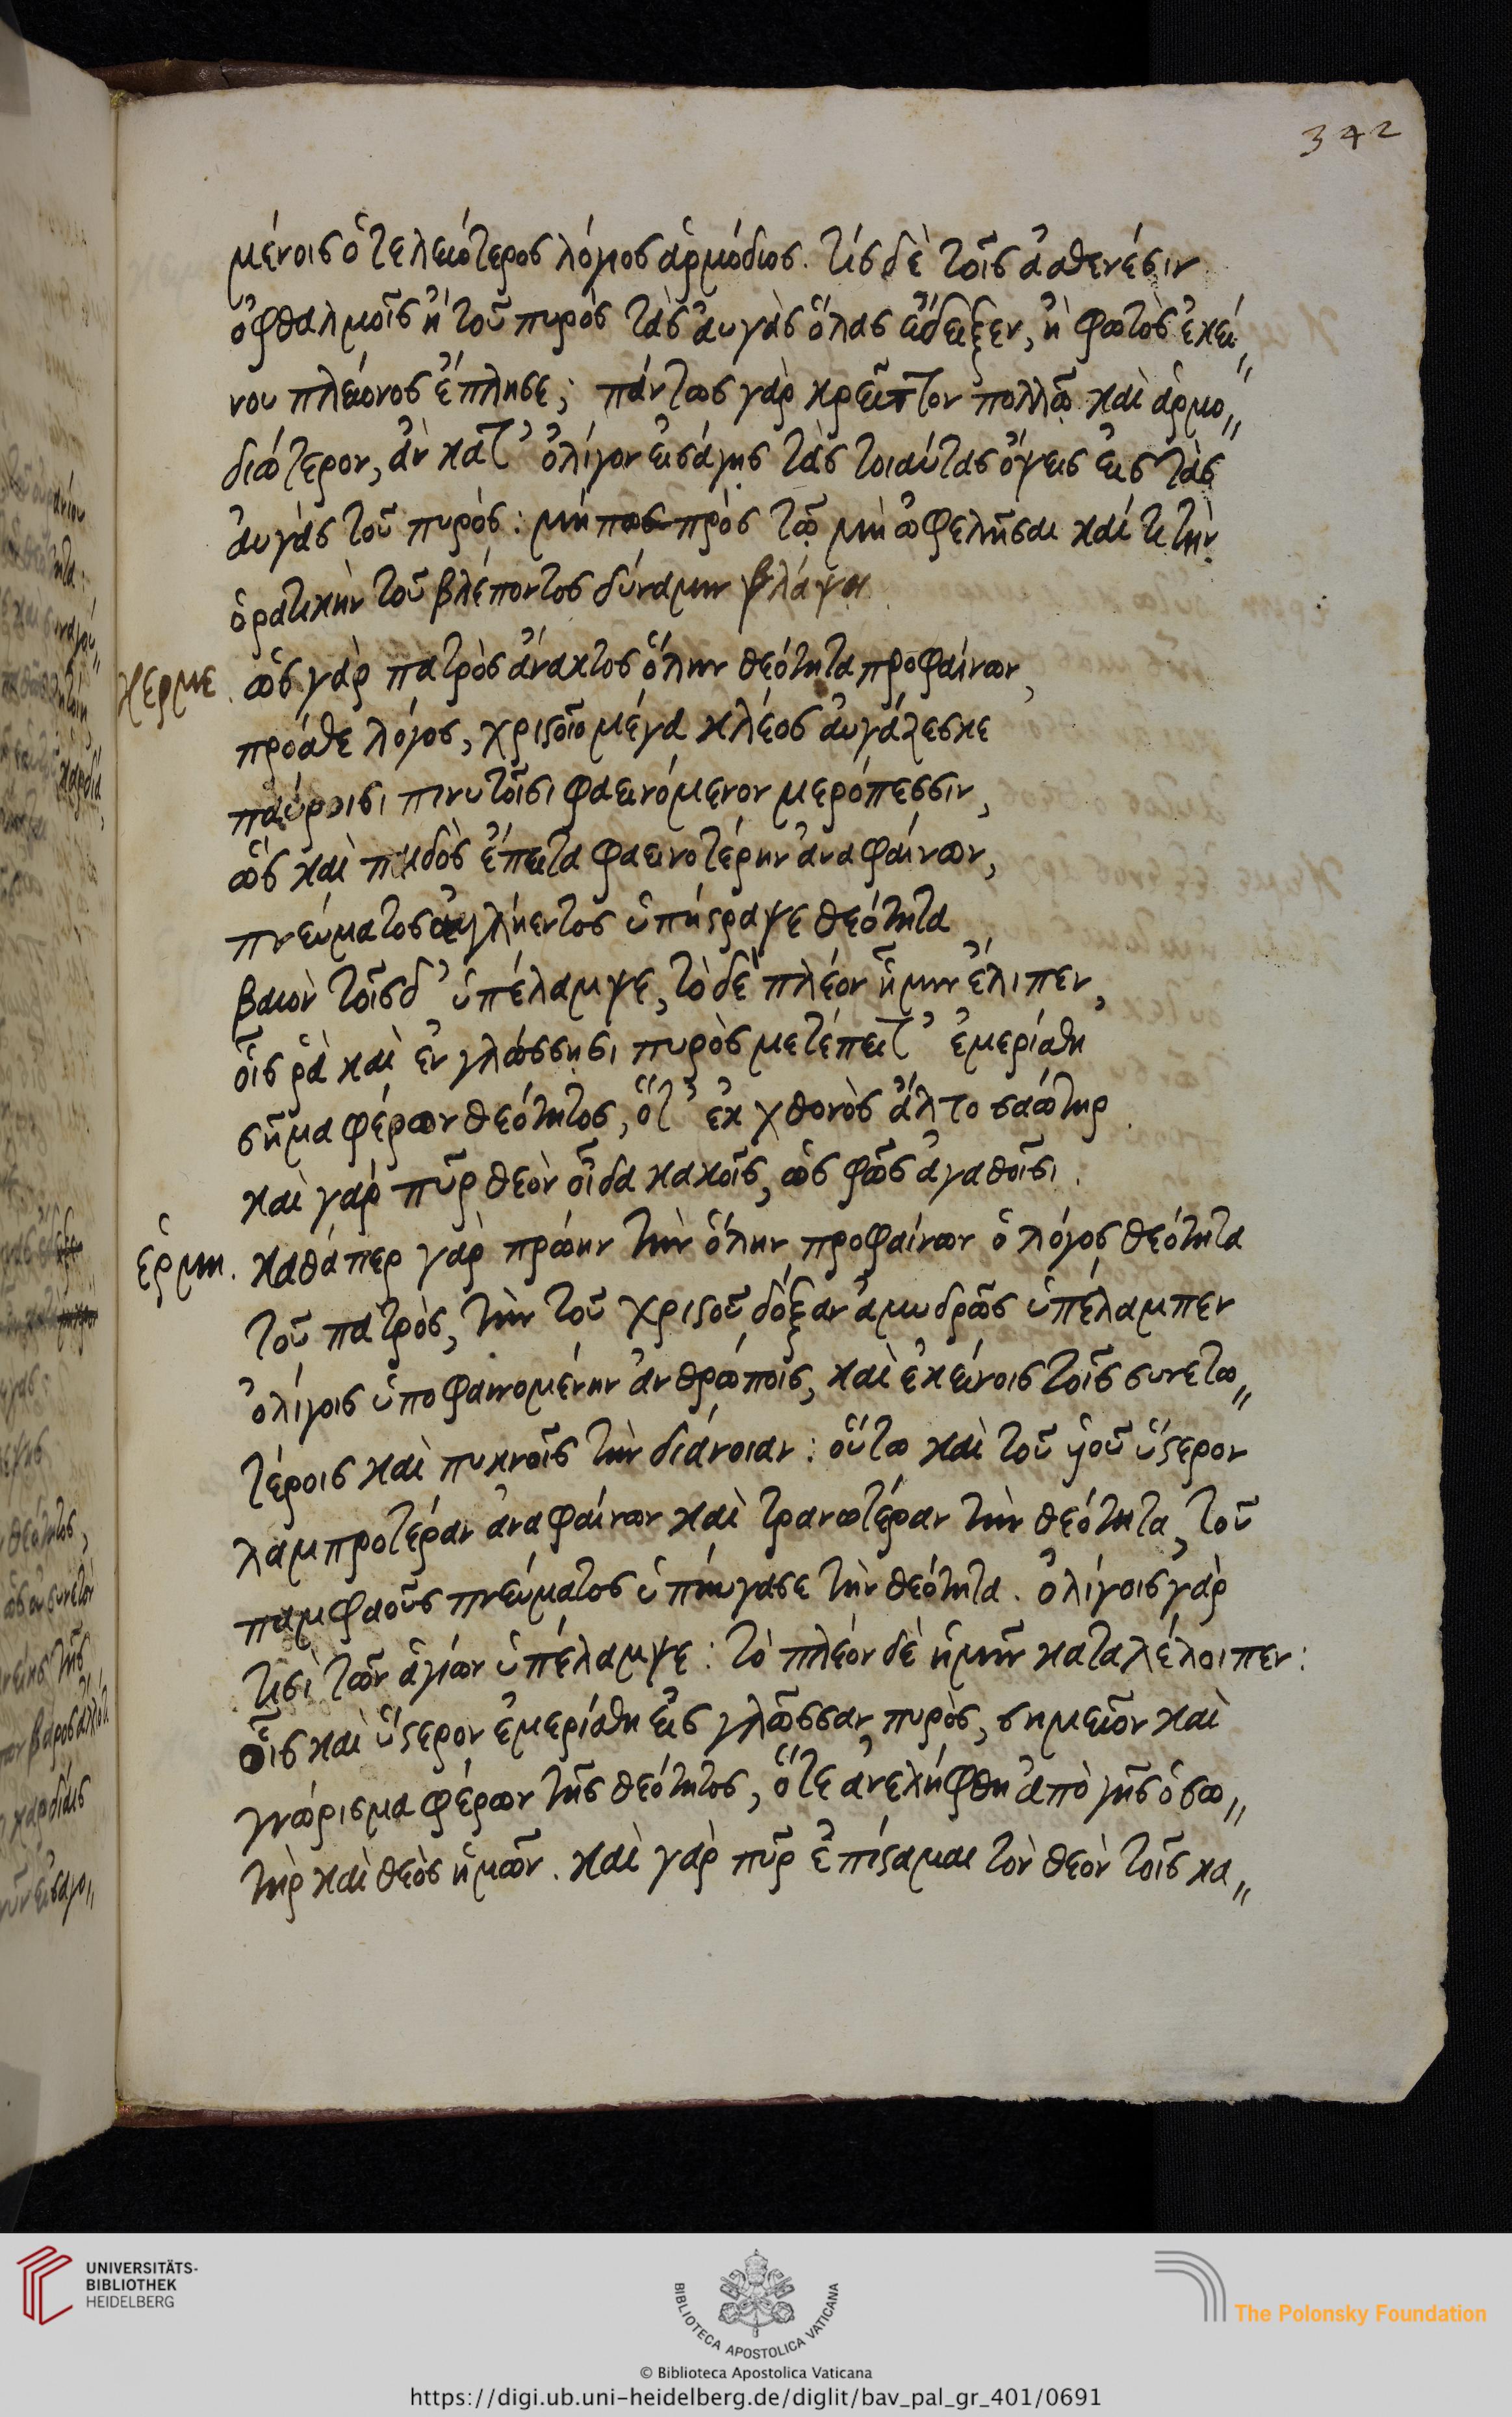 342
μένοις ὁ τελειότερος λόγος ἁρμόδιος. τίς δὲ τοῖς ἀσθενέσιν
ὀφθαλμοῖς ἢ τοῦ πυρὸς τὰς αὐγὰς ὅλας ἔδειξεν, ἢ φωτὸς ἐκεί„
νου πλείονος ἔπλησε; πάντως γὰρ κρεῖττον πολλῷ καὶ ἁρμο„
διώτερον, ἂν κατ' ὀλίγον εἰσάγῃς τὰς τοιαύτας ὄψεις εἰς τὰς
αὐγὰς τοῦ πυρός: μήπως πρὸς τῷ μὴ ὠφελῆσαι καί τι τὴν
ὁρατικὴν τοῦ βλέποντος δύναμιν βλάψῃ
κείμε. ὡς γὰρ πατρὸς ἄνακτος ὅλην θεότητα προφαίνων,
πρόσθε λόγος, χριστοῖο μέγα κλέος αὐγάζεσκε
παύροισι πινυτοῖσι φαεινόμενον μερόπεσσιν,
ὣς καὶ παιδὸς ἔπειτα φαεινοτέρην ἀναφαίνων,
πνεύματος αἰγλήεντος ὑπήστραψε θεότητα
βαιὸν τοῖσδ' ὑπέλαμψε, τὸ δὲ πλέον ἦμιν ἔλιπεν,
οἷς ῥὰ καὶ ἐν γλώσσῃσι πυρὸς μετέπειτ' ἐμερίσθη
σῆμα φέρων θεότητος, ὅτ' ἐκ χθονὸς ἆλτο σαώτηρ.
καὶ γὰρ πῦρ θεὸν οἶδα κακοῖς, ὡς φῶς ἀγαθοῖσι.
ἑρμη. καθάπερ γὰρ πρώην τὴν ὅλην προφαίνων ὁ λόγος θεότητα
τοῦ πατρὸς, τὴν τοῦ χριστοῦ δόξαν ἀμυδρῶς ὑπέλαμπεν
ὀλίγοις ὑποφαινομένην ἀνθρώποις, καὶ ἐκείνοις τοῖς συνετω„
τέροις καὶ πυκνοῖς τὴν διάνοιαν: οὕτω καὶ τοῦ υἱοῦ ὕστερον
λαμπροτέραν ἀναφαίνων καὶ τρανωτέραν τὴν θεότητα, τοῦ
παμφαοῦς πνεύματος ὑπηύγασε τὴν θεότητα. ὀλίγοις γὰρ
τισὶ τῶν ἁγίων ὑπέλαμψε: τὸ πλέον δὲ ἡμῖν καταλέλοιπεν:
οἷς καὶ ὕστερον ἐμερίσθη εἰς γλῶσσαν πυρὸς, σημεῖον καὶ
γνώρισμα φέρων τῆς θεότητος, ὅτε ἀνελήφθη ἀπὸ γῆς ὁ σω„
τὴρ καὶ θεὸς ἡμῶν. καὶ γὰρ πῦρ ἐπίσταμαι τὸν θεὸν τοῖς κα„
UNIVERSITÄTS-
BIBLIOTHEK
HEIDELBERG
BIBLIOTECA APOSTOLICA VATICANA
The Polonsky Foundation
© Biblioteca Apostolica Vaticana
https://digi.ub.uni-heidelberg.de/diglit/bav_pal_gr_401/0691